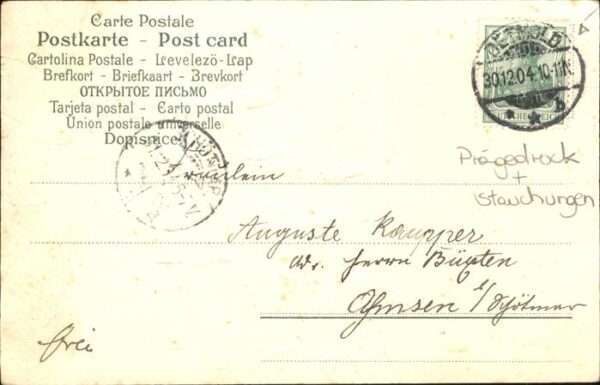 Carte Postale
Postkarte - Post card
Cartolina Postale - Levelezö-Lap
Brefkort - Briefkaart - Brevkort
ОТКРЫТОЕ ПИСЬМО
Tarjeta postal - Carto postal
Union postale universelle
Dopisnice
DETMOLD
30.12.04.10-11N.
* * b
Prägedruck
+
Stauchungen
Fräulein
Auguste
adr. Herrn
Ahmsen b/Schötmar
frei